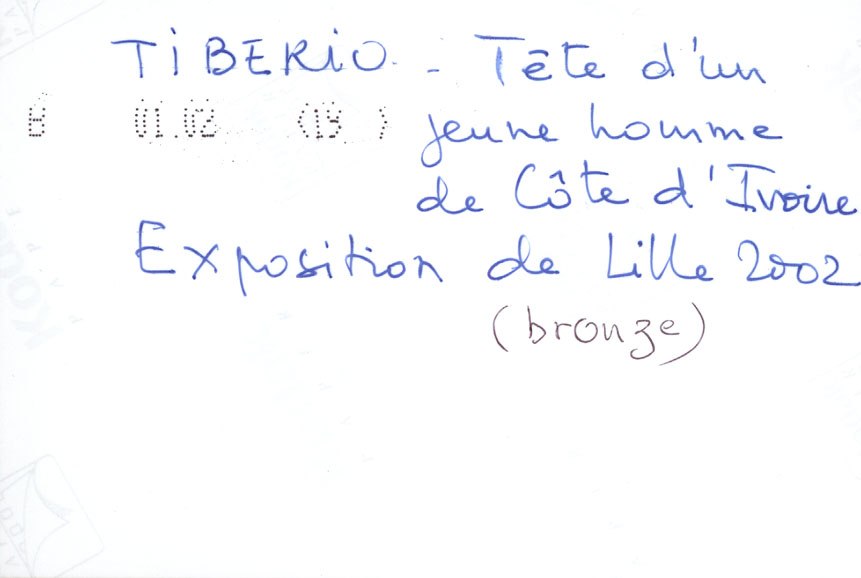 TiBERiO. - Tête d'un
jeune homme
8 01.02 (19 )
de Côte d'Ivoire
Exposition de Lille 2002
(bronze)